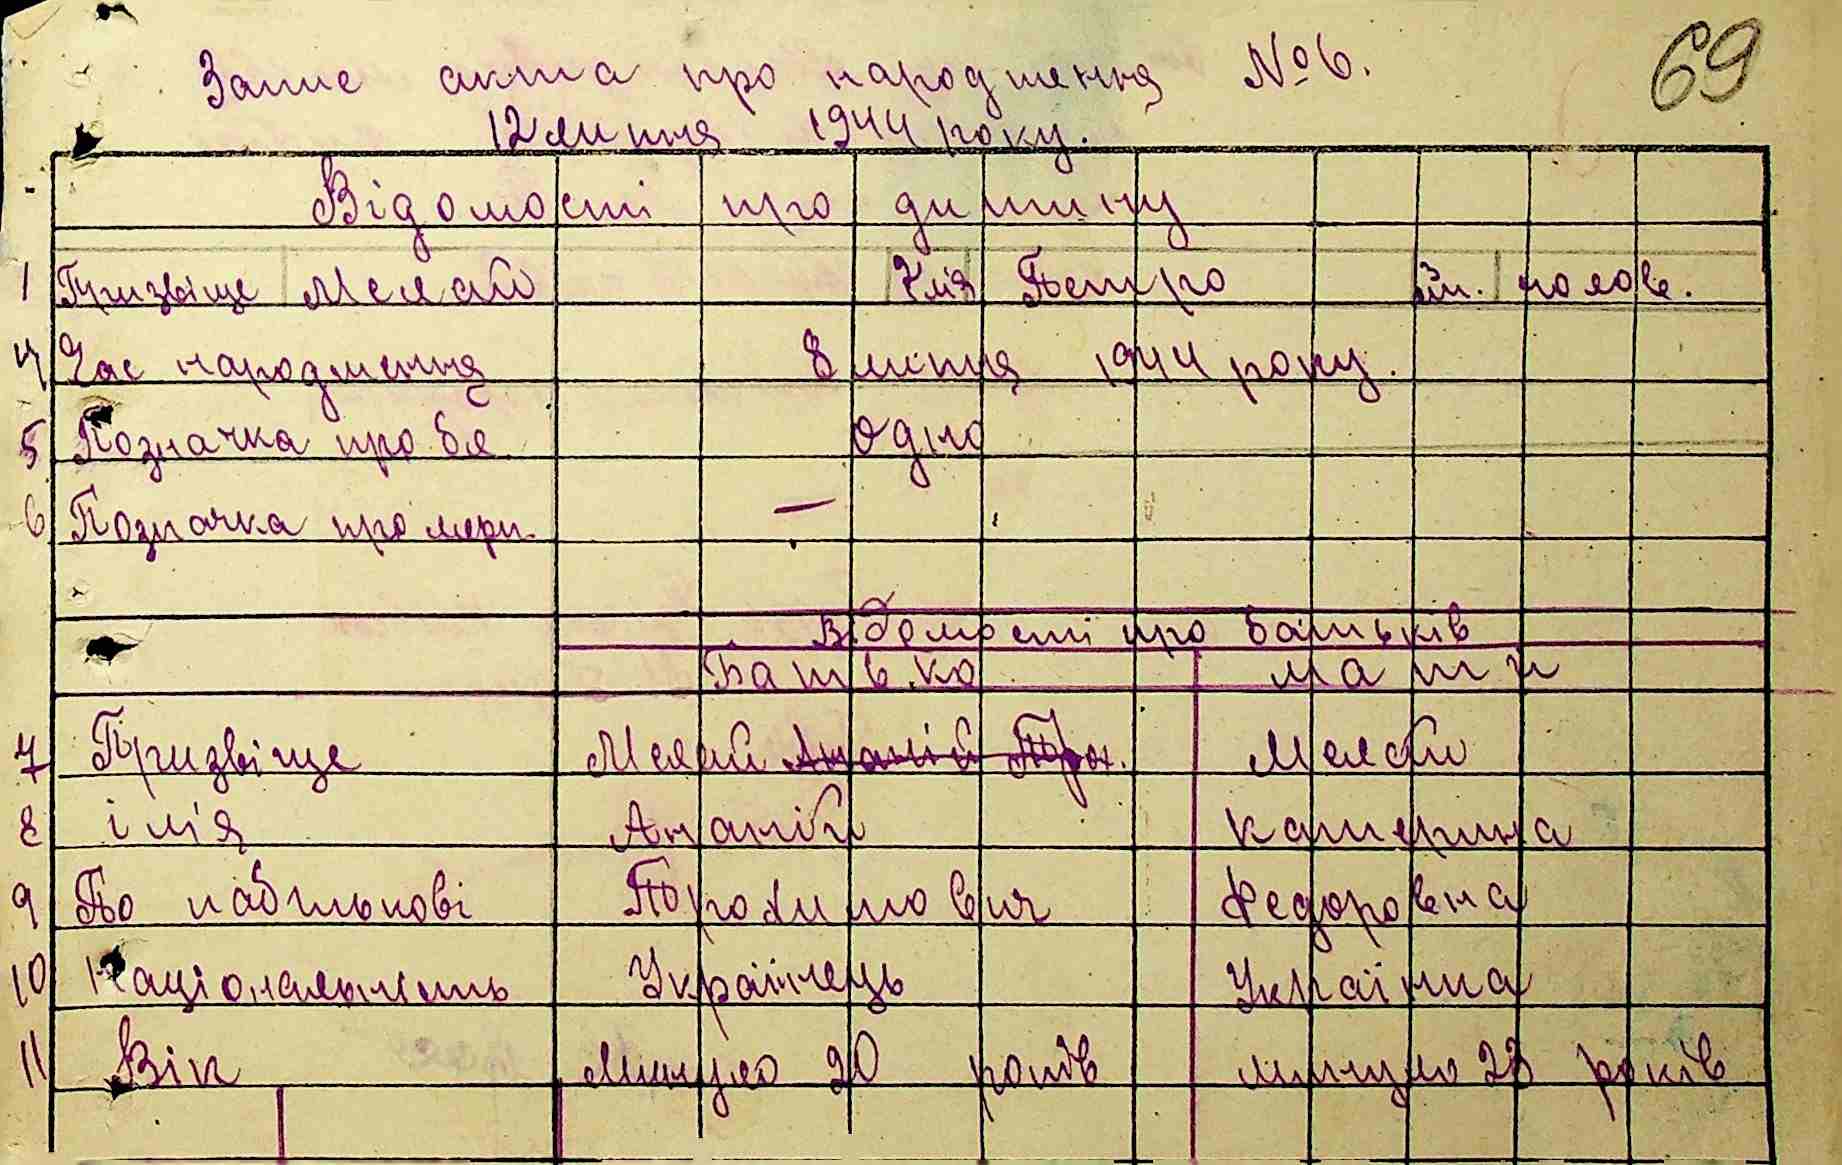 69
Запис акта про народження № 6.
12 липня 1944 року.
Відомості про дитину
1 Призвіще Мелай Імія Петро 3 полове.
4 Час народження 8 липня 1944 року.
5 Позначка про бл. одно
6 Позначка про мерт. —
Відомості про батьків
Батько мати
7 Призвіще Мелай Ананій Тро. Мелай
8 імія Ананій катерина
9 По набатькові Трохимович Федоровна
10 Національність Українець Українка
11 Вік минуло 20 років минуло 23 років